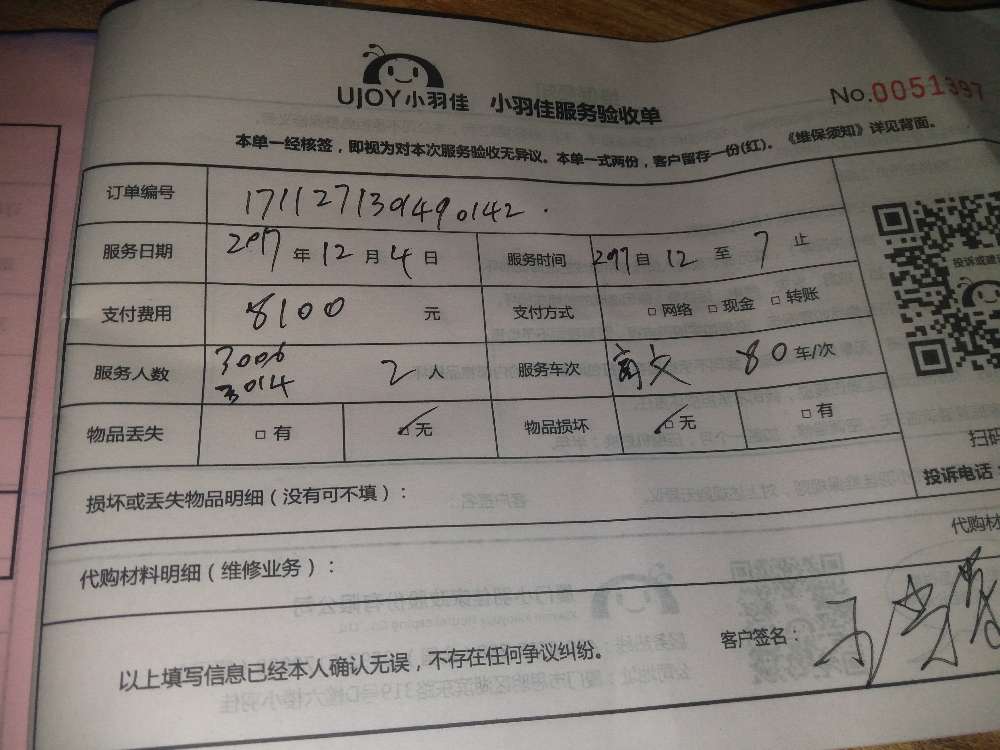 UJOY小羽佳 小羽佳服务验收单
No.0051397
本单一经核签，即视为对本次服务验收无异议。本单一式两份，客户留存一份(红)。《维保须知》详见背面。
订单编号 171127130490142
服务日期 2017年12月4日 服务时间 2017自12至7止
支付费用 8100元 支付方式 □网络 □现金 □转账
服务人数 3006 3014 2人 服务车次 80车/次
物品丢失 □有 □无 物品损坏 □无 □有
损坏或丢失物品明细（没有可不填）：
代购材料明细（维修业务）：
以上填写信息已经本人确认无误，不存在任何争议纠纷。
客户签名：
投诉或建
扫码
投诉电话：
代购材